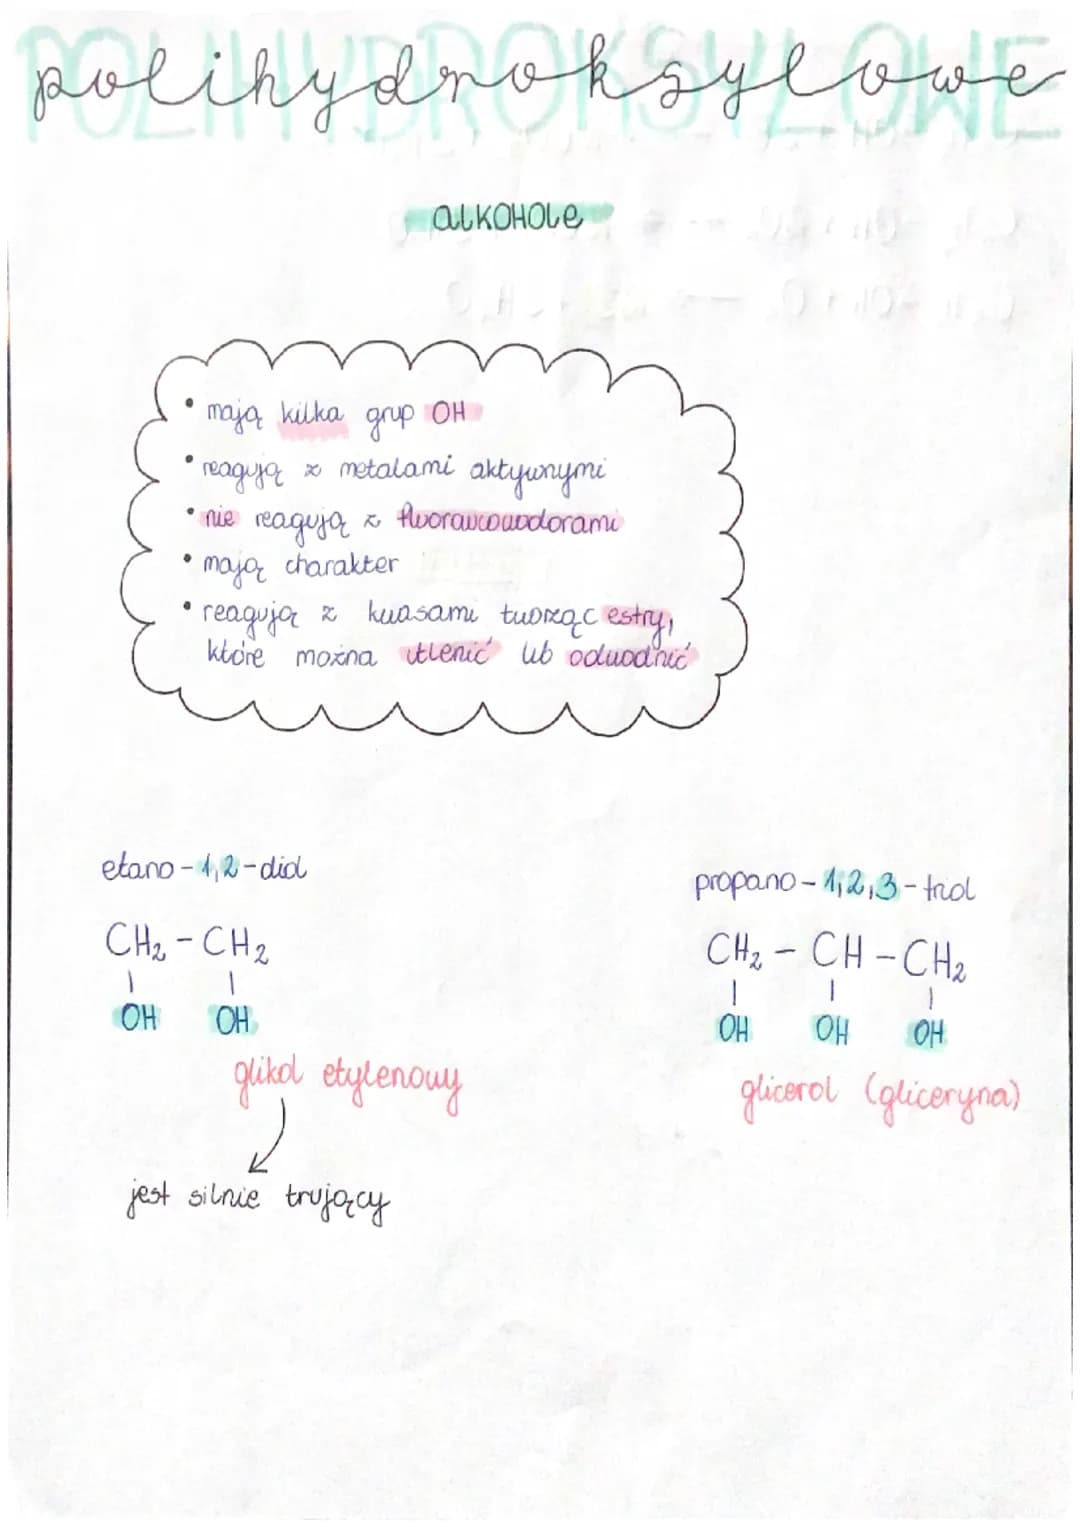 POLIHYDROKSYLOWE
polihydroksylowe
alKOHOLe
• mają kilka grup OH
• reagują z metalami aktywnymi
• nie reagują z fluorowcowodorami
• mają charakter
• reagują z kwasami tworząc estry,
które można utlenić lub odwodnić
etano-1,2-diol
CH₂ - CH₂
OH OH
glikol etylenowy
jest silnie trujący
propano-1,2,3-triol
CH₂ - CH - CH₂
OH OH OH
glicerol (gliceryna)